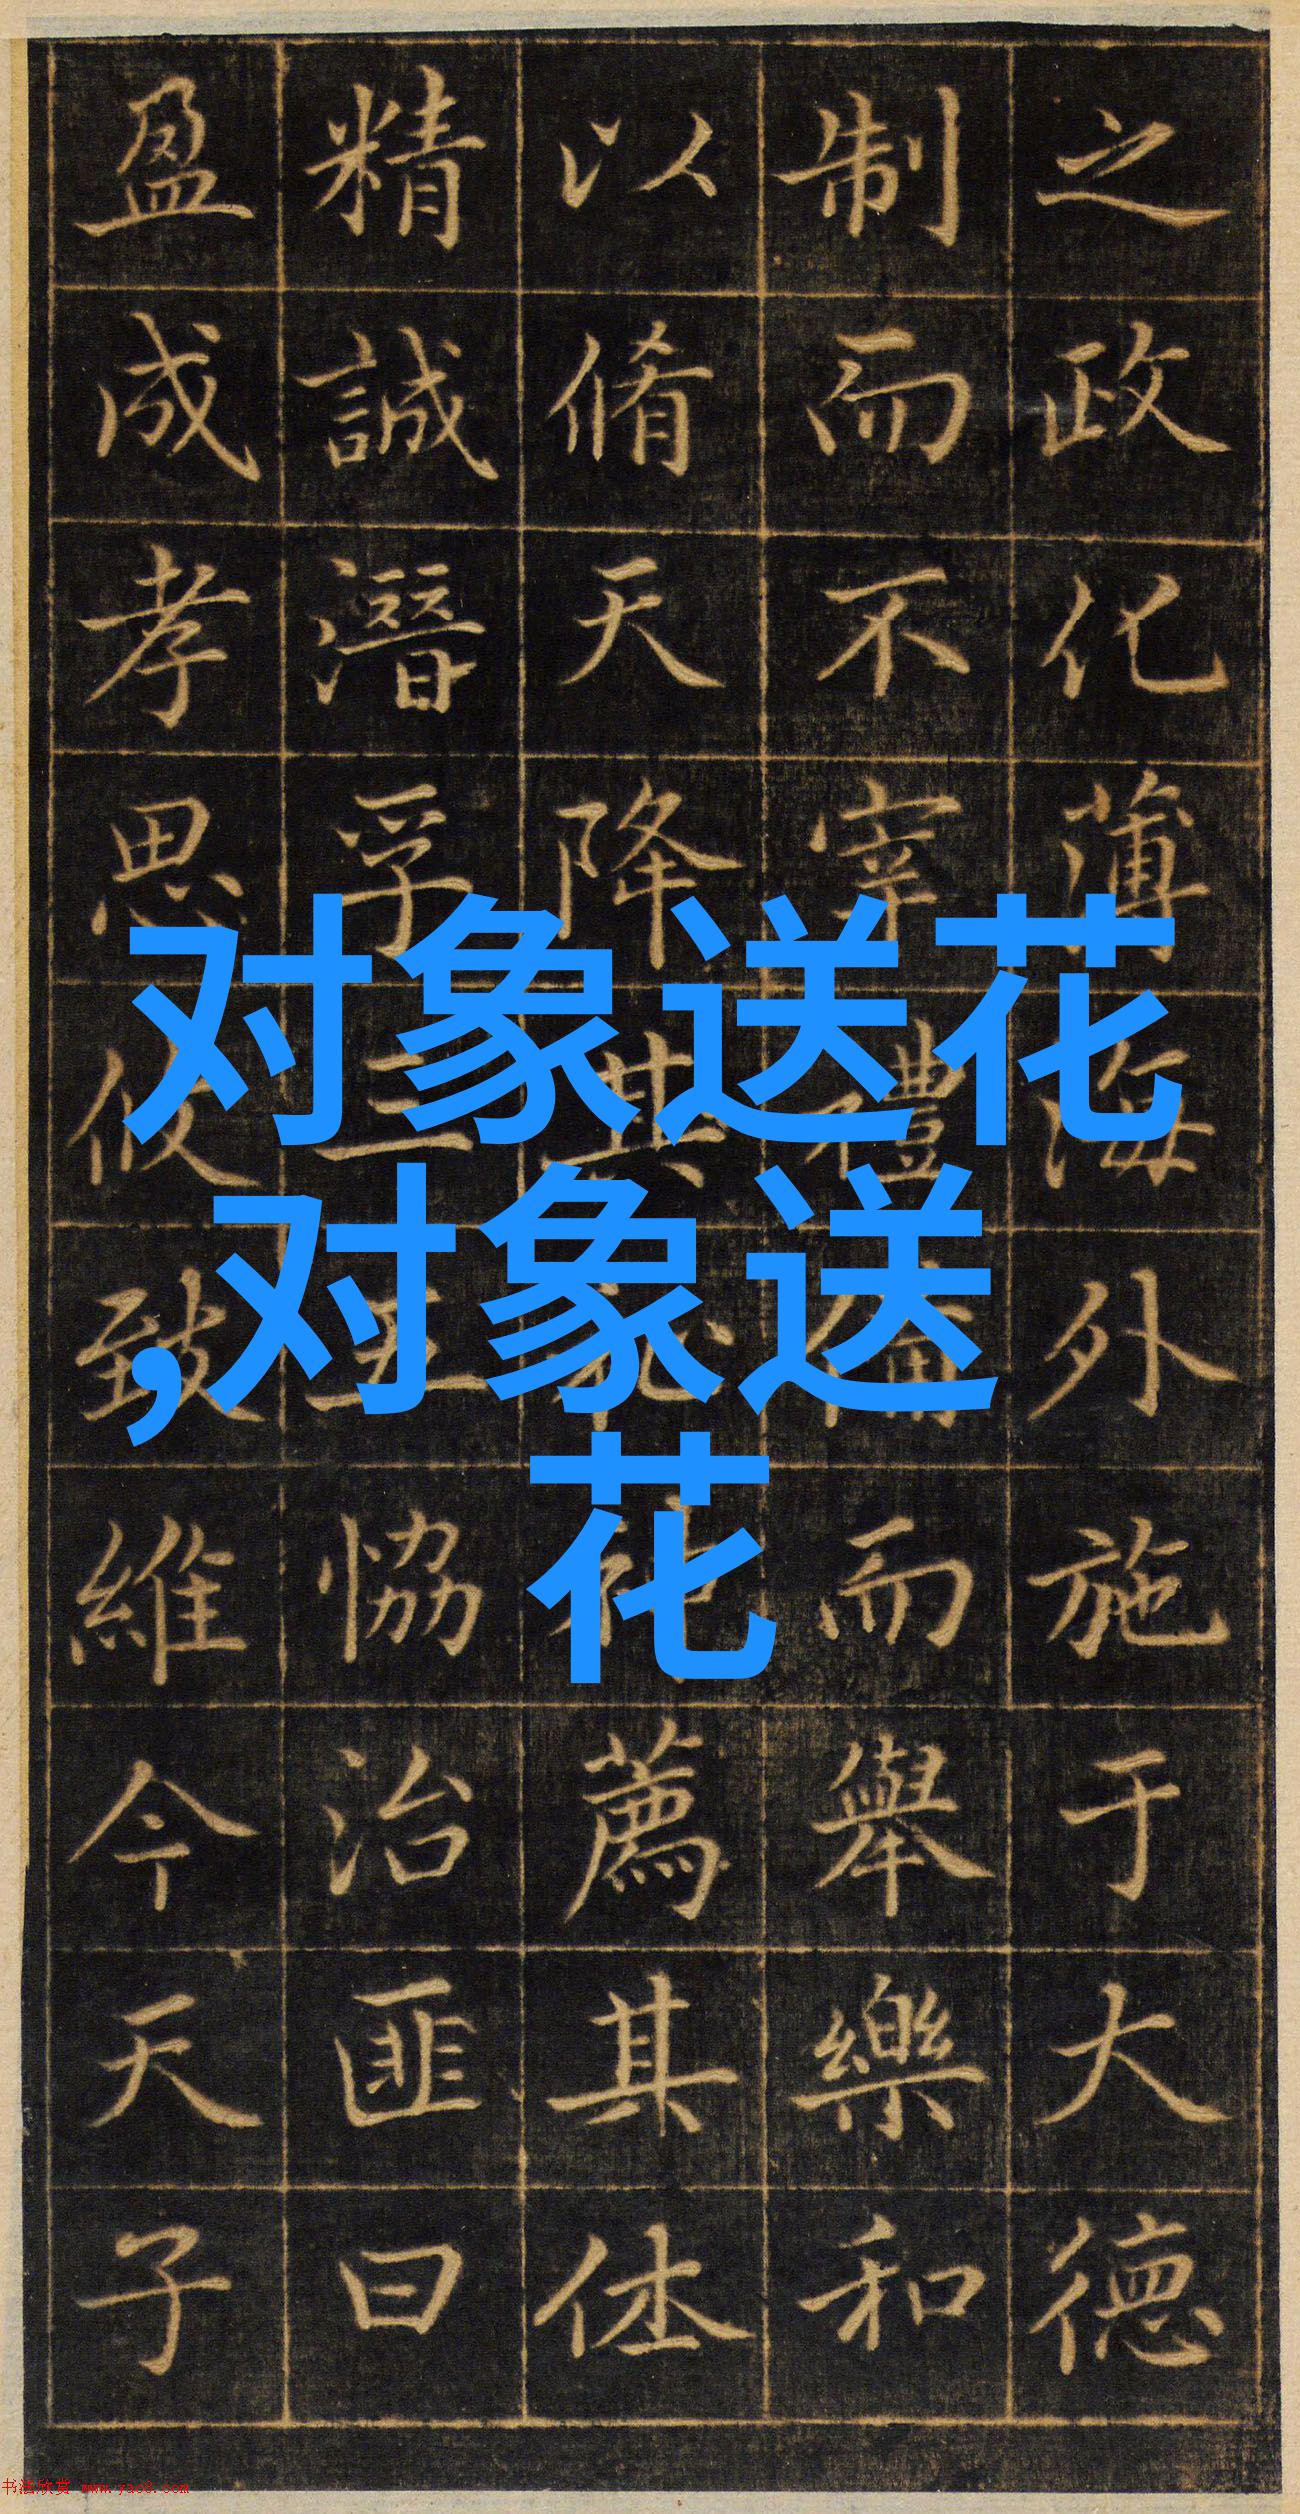 之政化薄海外施于大德
制而不宰禮備而舉樂和
以脩天降其薦其休
精誠潛孚三五恊治匪曰
盈成孝思攸致維今天子
对象送花
,对象送
花
书法欣赏 www.yac8.com